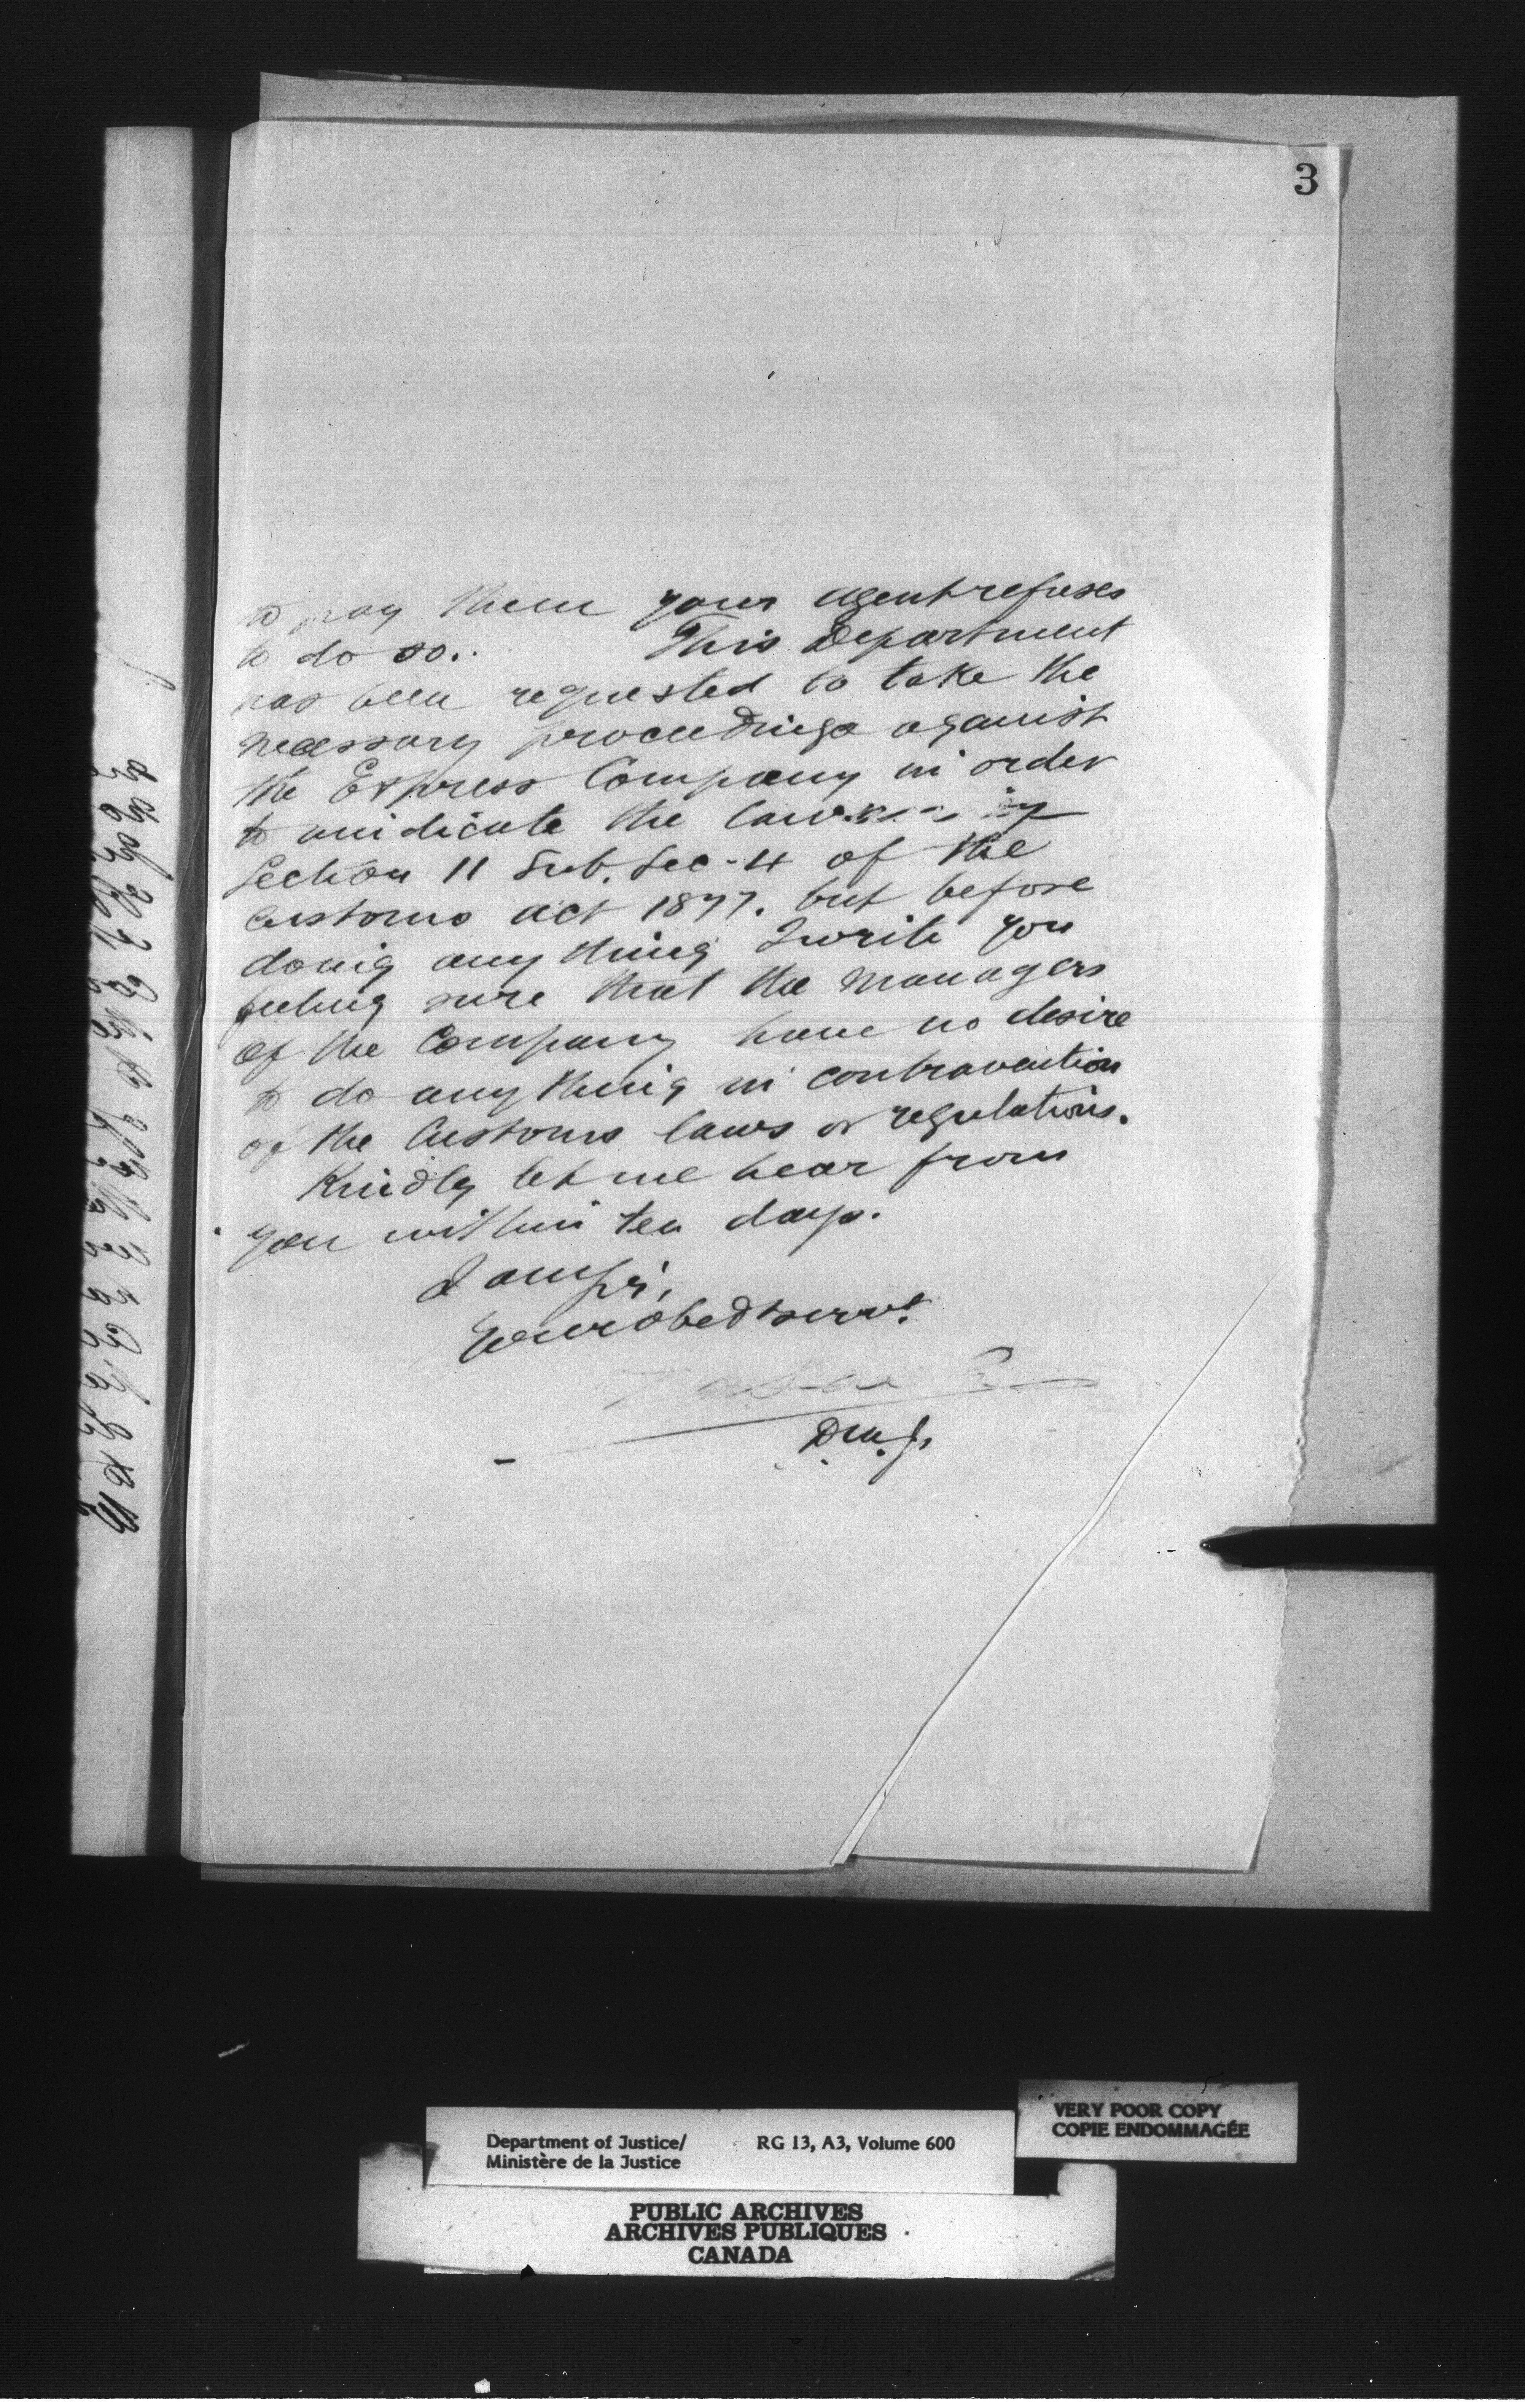 3
to pay them your agent refuses
to do so. This Department
has been requested to take the
necessary proceedings against
the Express Company in order
to vindicate the law
Section 11 Sub. Sec-4 of the
Customs Act 1877. but before
doing any thing I write you
feeling sure that the Managers
of the Company have no desire
to do any thing in contravention
of the Customs laws or regulations.
Kindly let me hear from
you within ten days.
I am Sir,
Your obedt servt.
D.M.J.
VERY POOR COPY
COPIE ENDOMMAGÉE
Department of Justice/ RG 13, A3, Volume 600
Ministère de la Justice
PUBLIC ARCHIVES
ARCHIVES PUBLIQUES
CANADA